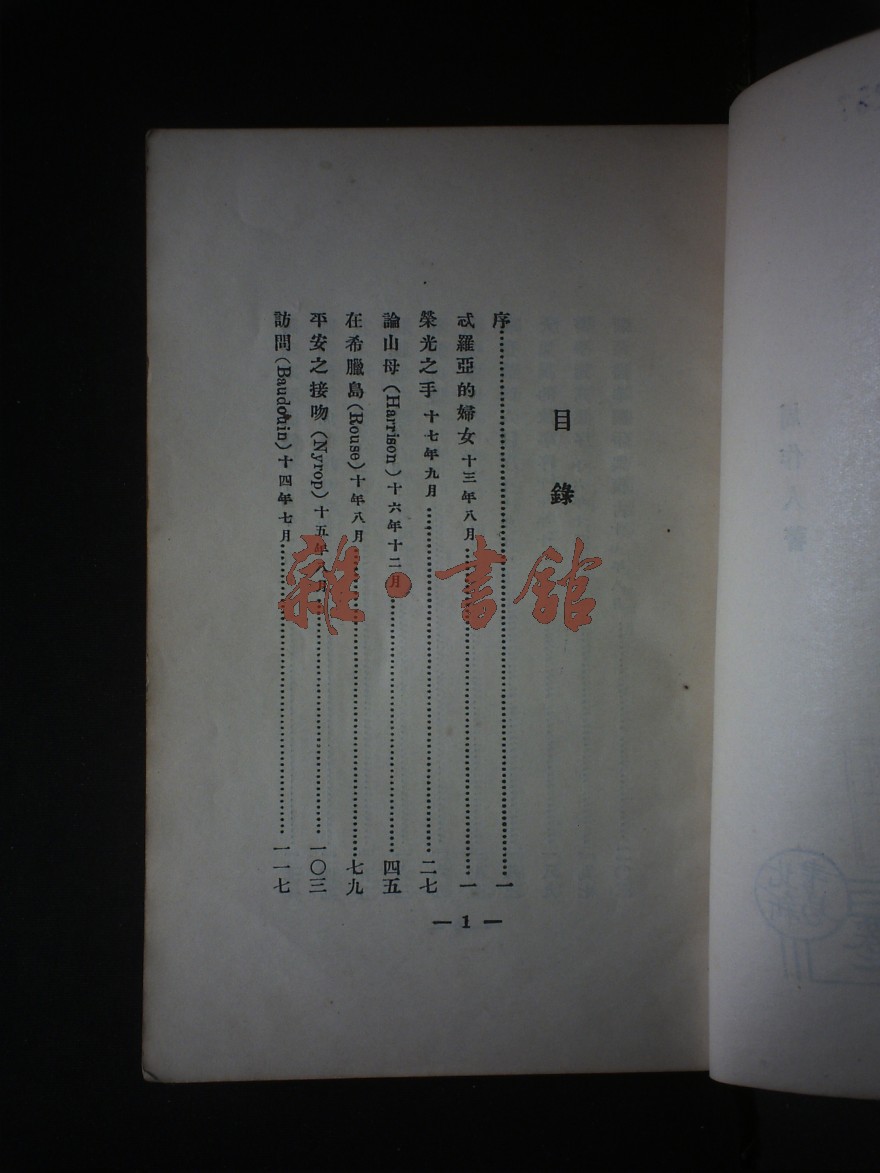 目錄
序……一
忒羅亞的婦女 十三年八月……一
榮光之手 十七年九月……二七
論山母(Harrison)十六年十二月……四五
在希臘島(Rouse)十年八月……七九
平安之接吻(Nyrop)十五年八月……一〇三
訪問(Baudouin)十四年七月……一一七
— 1 —
雜·書館